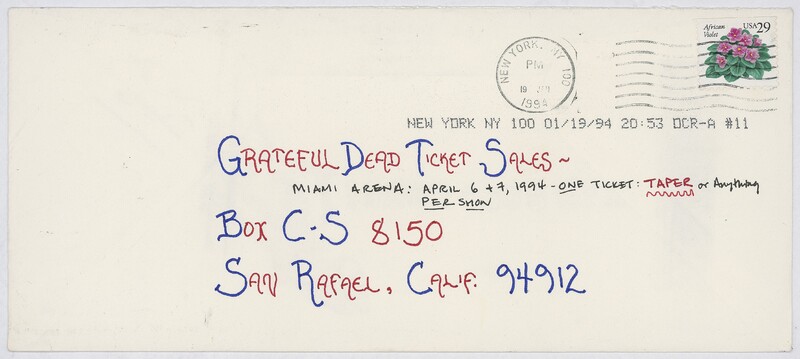 African
Violet
USA 29
NEW YORK, NY 100
PM
19
1994
NEW YORK NY 100 01/19/94 20:53 OCR-A #11
GRATEFUL DEAD TICKET SALES ~
MIAMI ARENA: APRIL 6 + 7, 1994 - ONE TICKET: TAPER or Anything
PER SHOW
BOX C-S 8150
SAN RAFAEL, CALIF. 94912